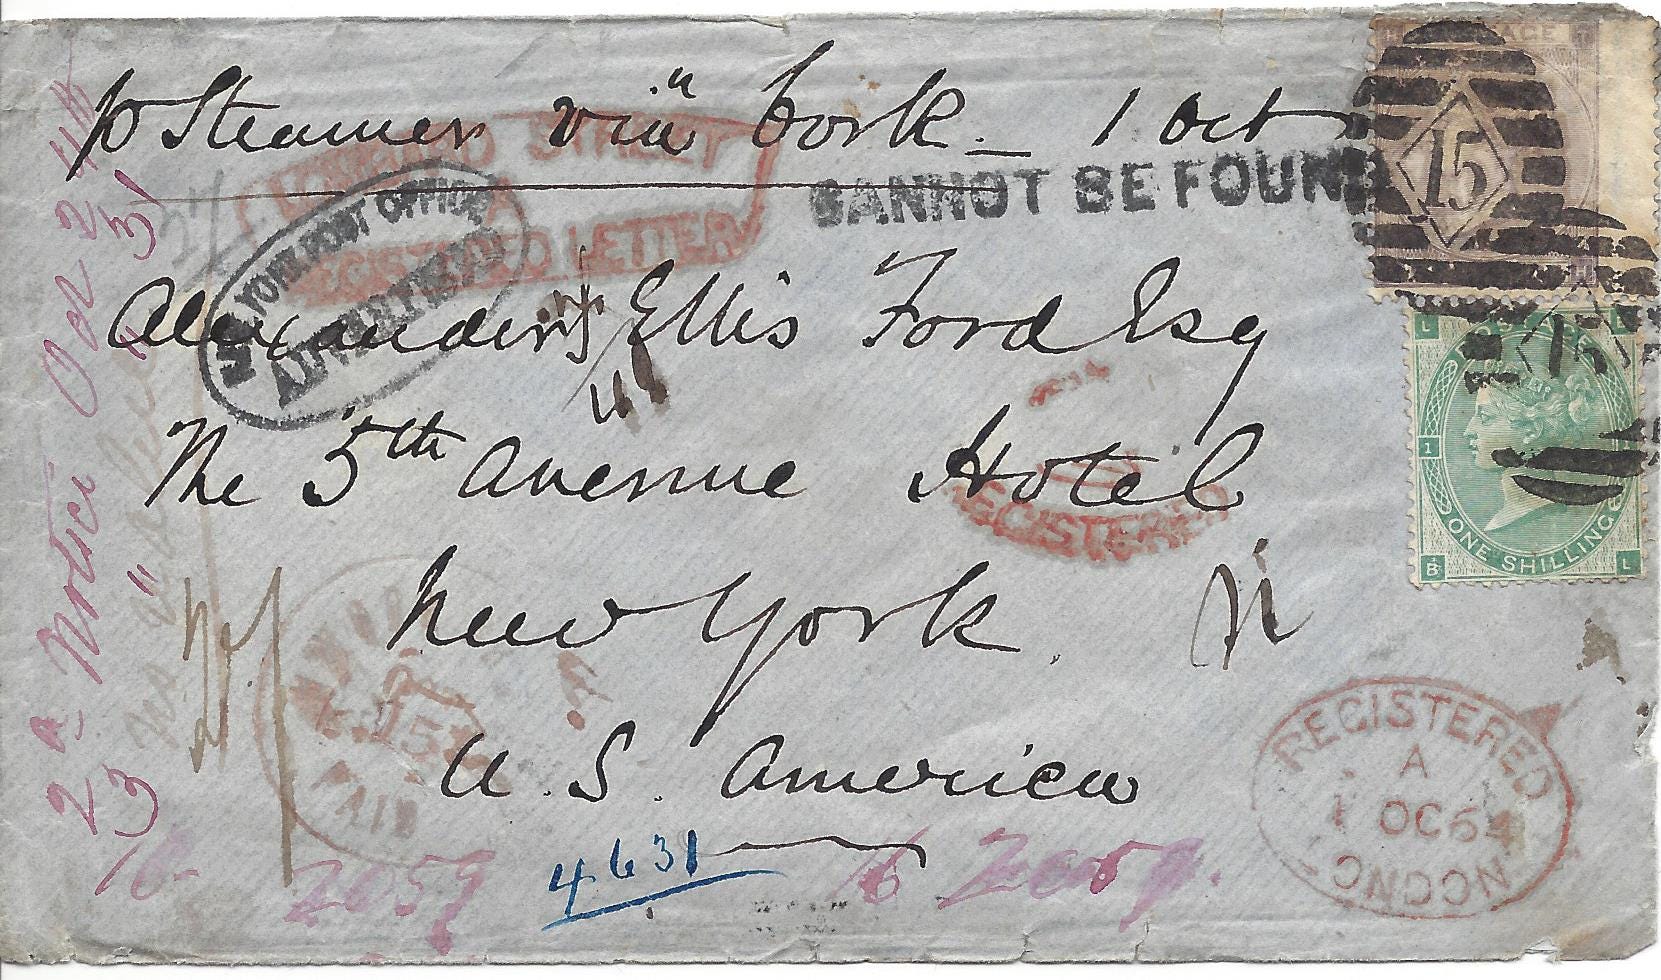 p Steamer via Cork _ 1 Oct
LOMBARD STREET
A
REGISTERED LETTER
NEW YORK POST OFFICE
ADVERTISED
CANNOT BE FOUND
Alexander Ellis Ford Esq
The 5th Avenue Hotel
New York
U. S. America
REGISTERED
15
15
ONE SHILLING
L
1
B L
PAID
15
REGISTERED
A
1 OC 64
LONDON
2d Notice Oct 24th
31
4631
16 2059
16 2059.